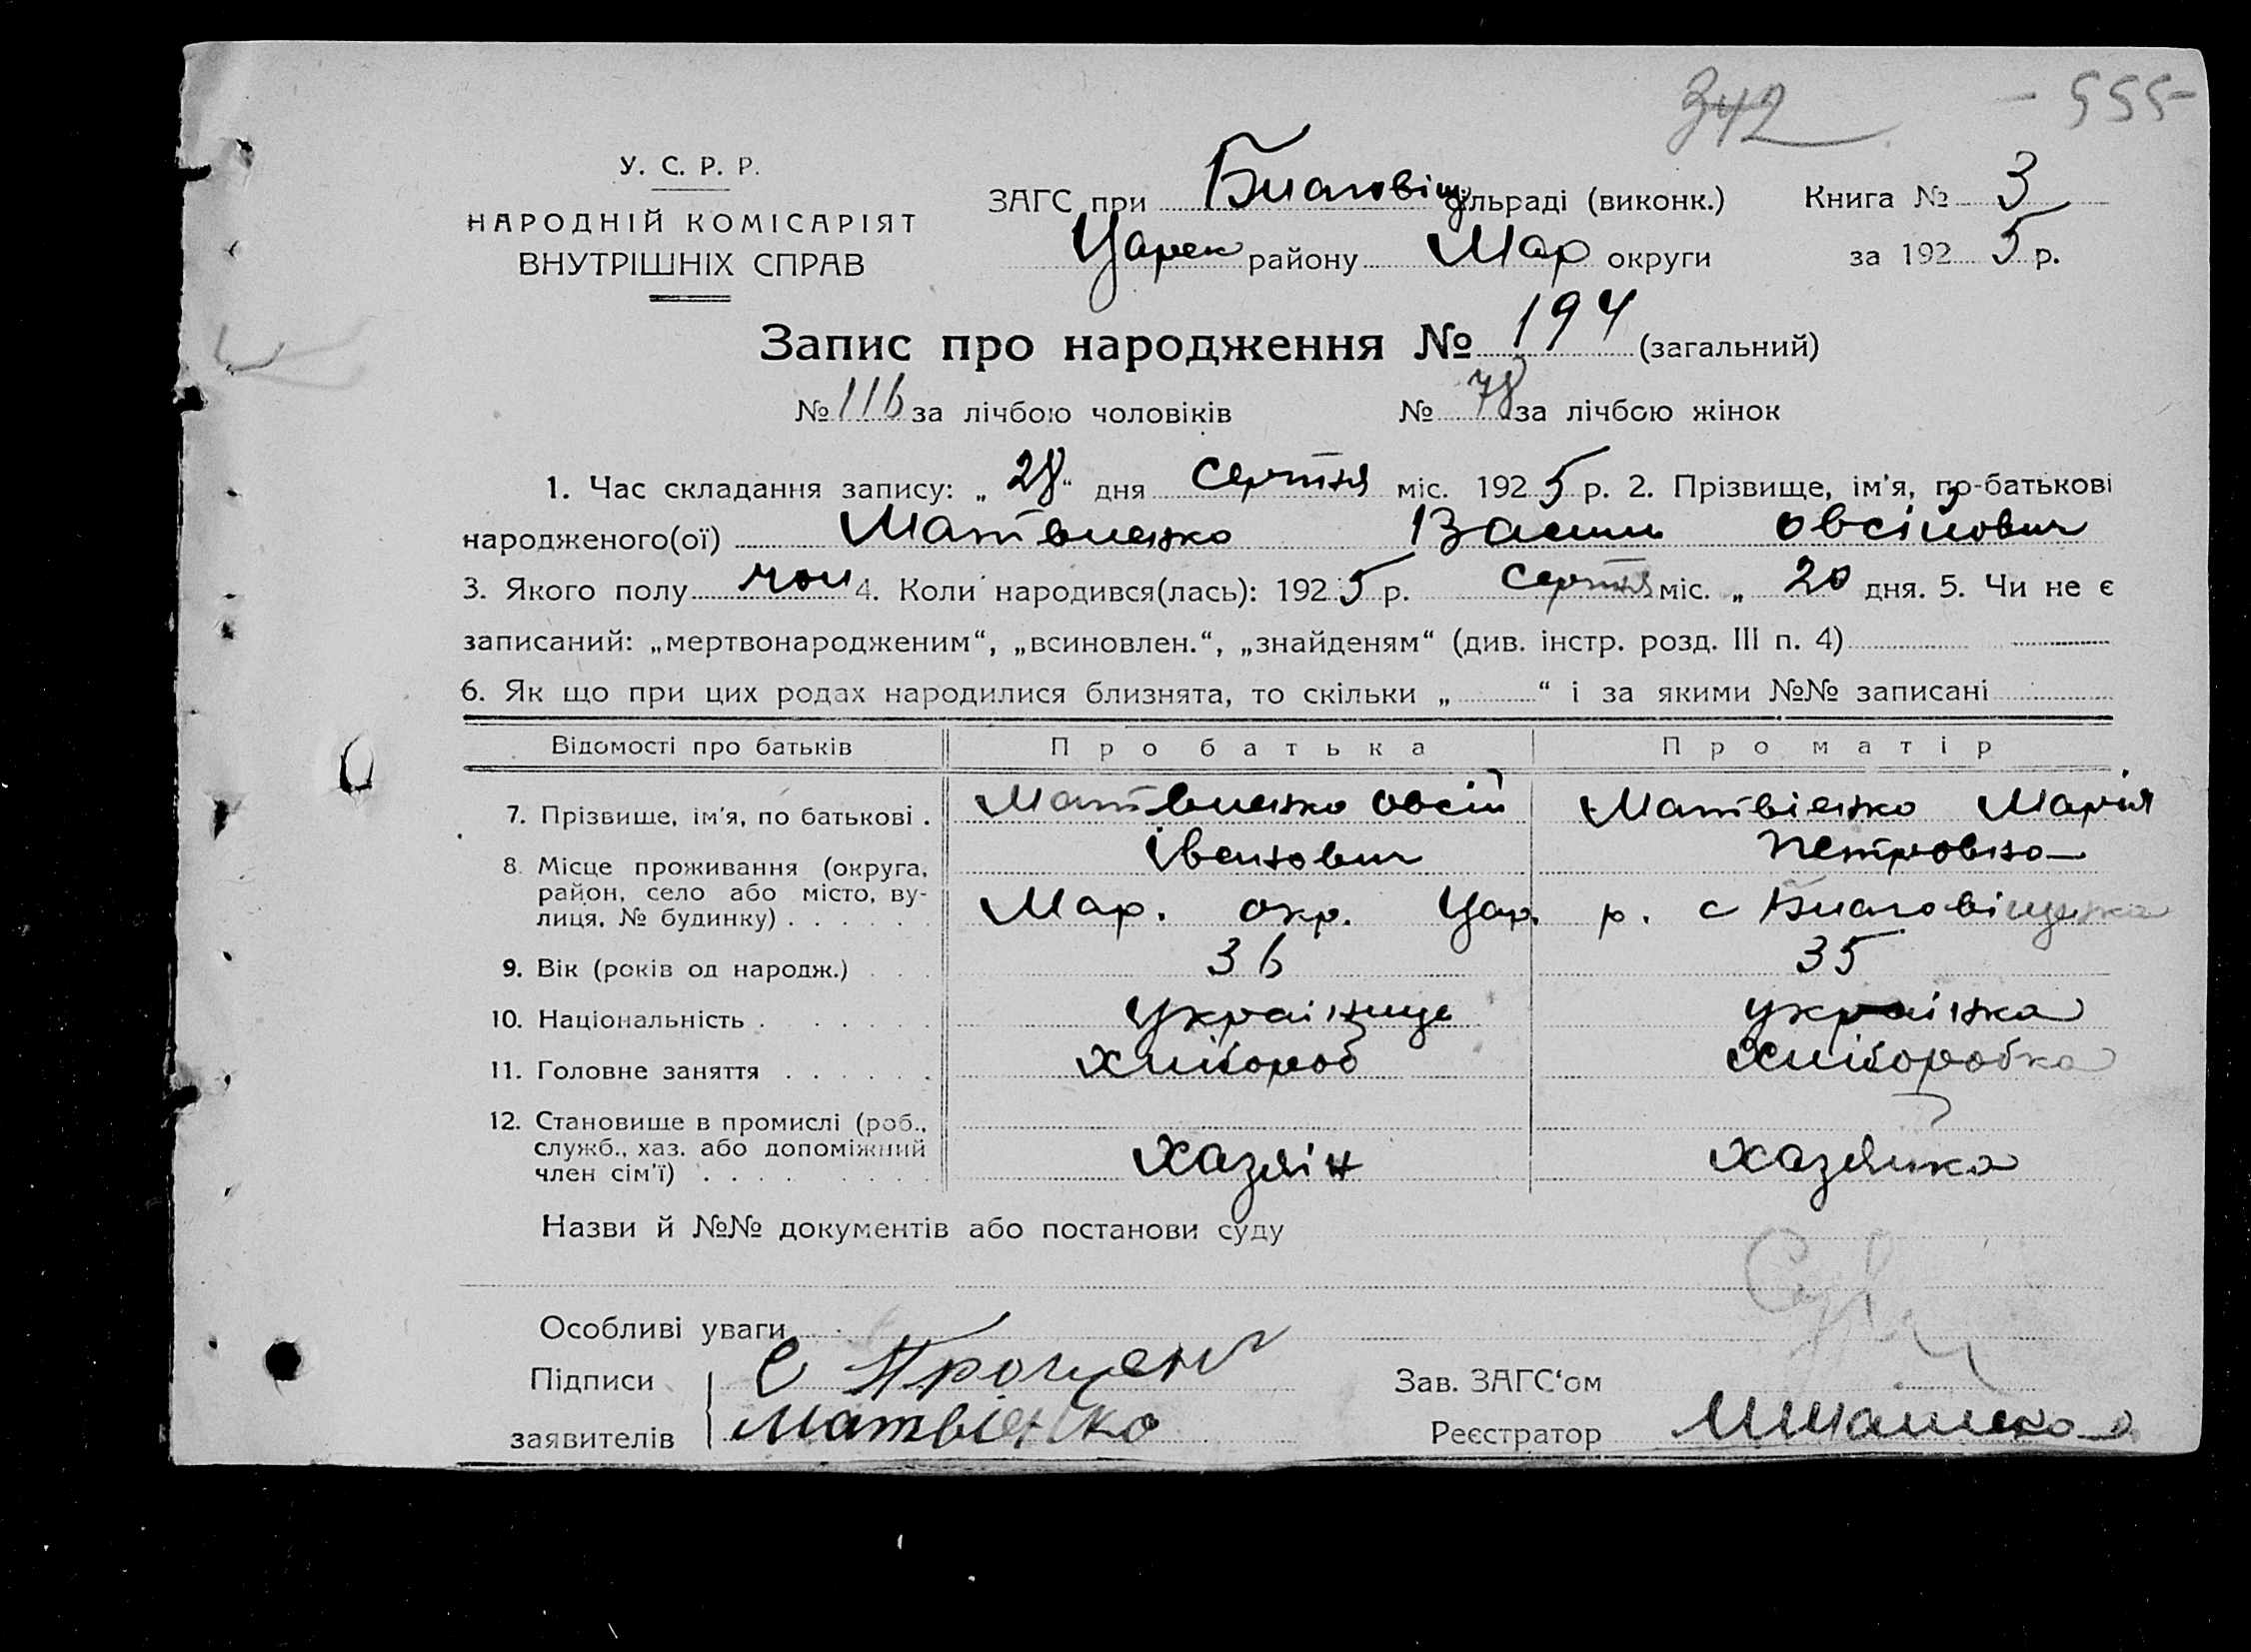 342 - 555-
У. С. Р. Р.
НАРОДНІЙ КОМІСАРІЯТ
ВНУТРІШНІХ СПРАВ
ЗАГС при Благовіщ сільраді (виконк.) Книга № 3
Царек району Мар округи за 1925 р.
Запис про народження № 194 (загальний)
№ 116 за лічбою чоловіків № 78 за лічбою жінок
1. Час складання запису: „28“ дня Серпня міс. 1925 р. 2. Прізвище, ім'я, по-батькові
народженого(ої) Матвиенко Васил Овсійович
3. Якого полу чол 4. Коли народився(лась): 1925 р. Серпня міс. „ 20 дня. 5. Чи не є
записаний: „мертвонародженим“, „всиновлен.“, „знайденям“ (див. інстр. розд. III п. 4)
6. Як що при цих родах народилися близнята, то скільки „ “ і за якими №№ записані
Відомості про батьків Про батька Про матір
7. Прізвище, ім'я, по батькові . Матвиенко Овсій Матвіенко Марія
Іванович Петровна
8. Місце проживання (округа,
район, село або місто, ву-
лиця, № будинку) . . . . . . Мар. окр. Цар. р. с Благовіщенка
9. Вік (років од народж.) . . . 36 35
10. Національність . . . . . . Українце українка
11. Головне заняття . . . . . . Хлібороб Хліборобка
12. Становище в промислі (роб.,
служб., хаз. або допоміжний
член сім'ї) . . . . . . . . Хазяін Хазяйка
Назви й №№ документів або постанови суду
Особливі уваги
Підписи С Процен Зав. ЗАГС‘ом
заявителів Матвіенко Реєстратор